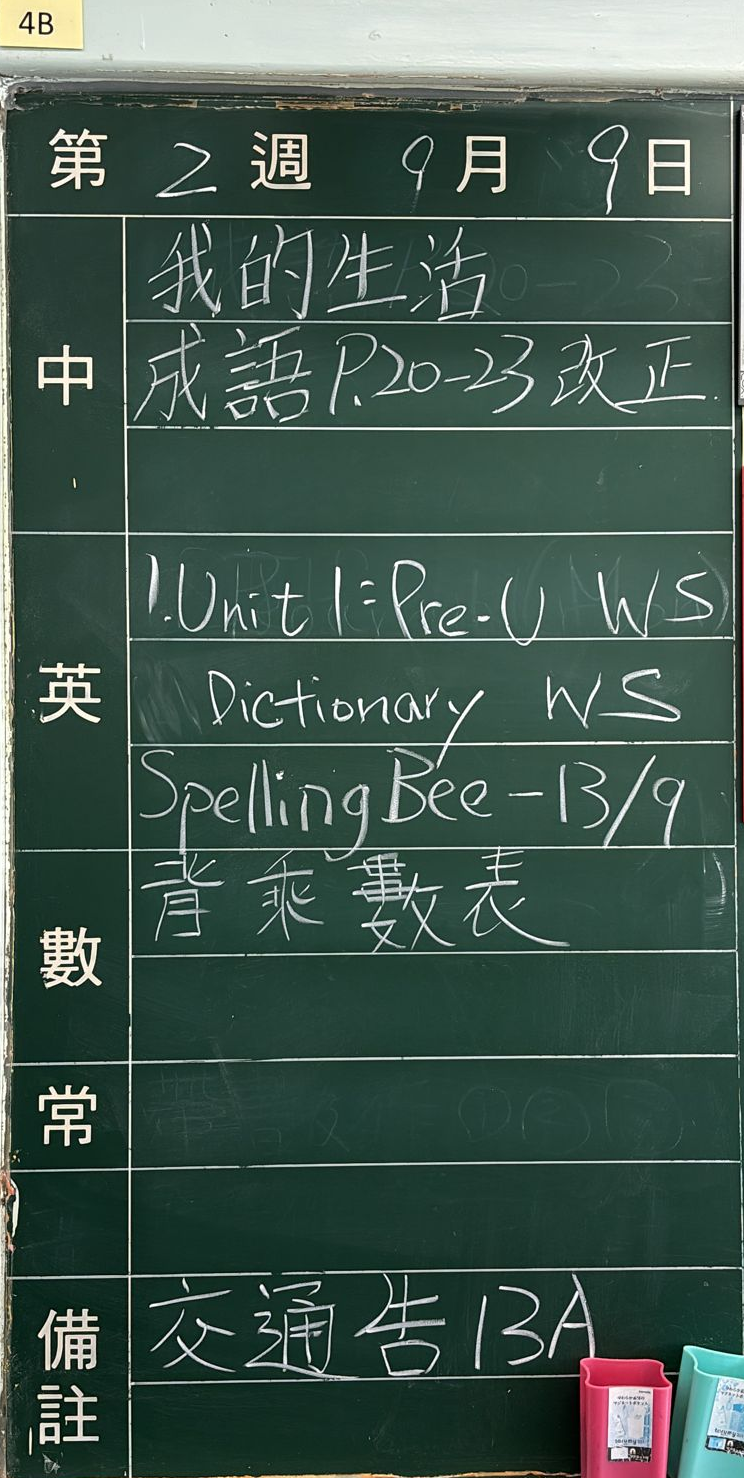 4B
第 2 週 9 月 9 日
中
我的生活
成語 P.20-23 改正.
英
1.Unit 1: Pre-U WS
Dictionary WS
Spelling Bee - 13/9
數
背乘數表
常
備註
交通告 13A